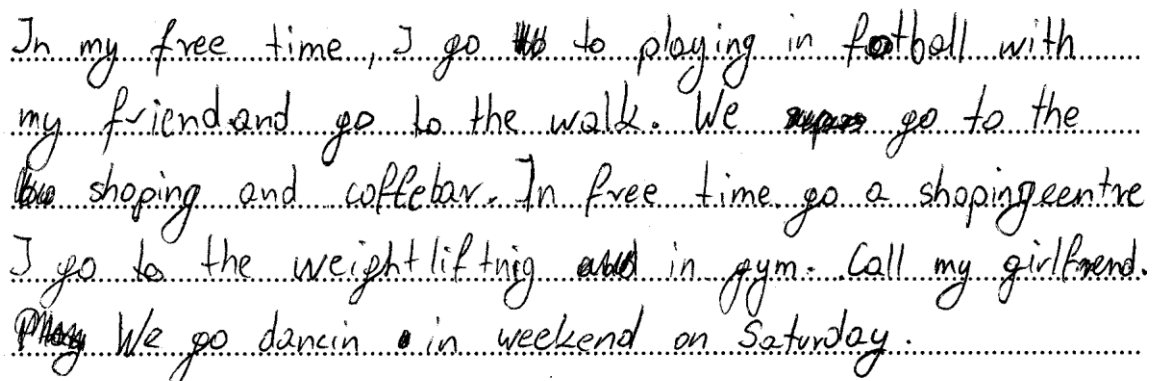 In my free time, I go to playing in football with
my friend and go to the walk. We go to the
shoping and coffebar. In free time go a shopingcentre
I go to the weightliftnig in gym. Call my girlfrend.
We go dancin in weekend on Saturday.